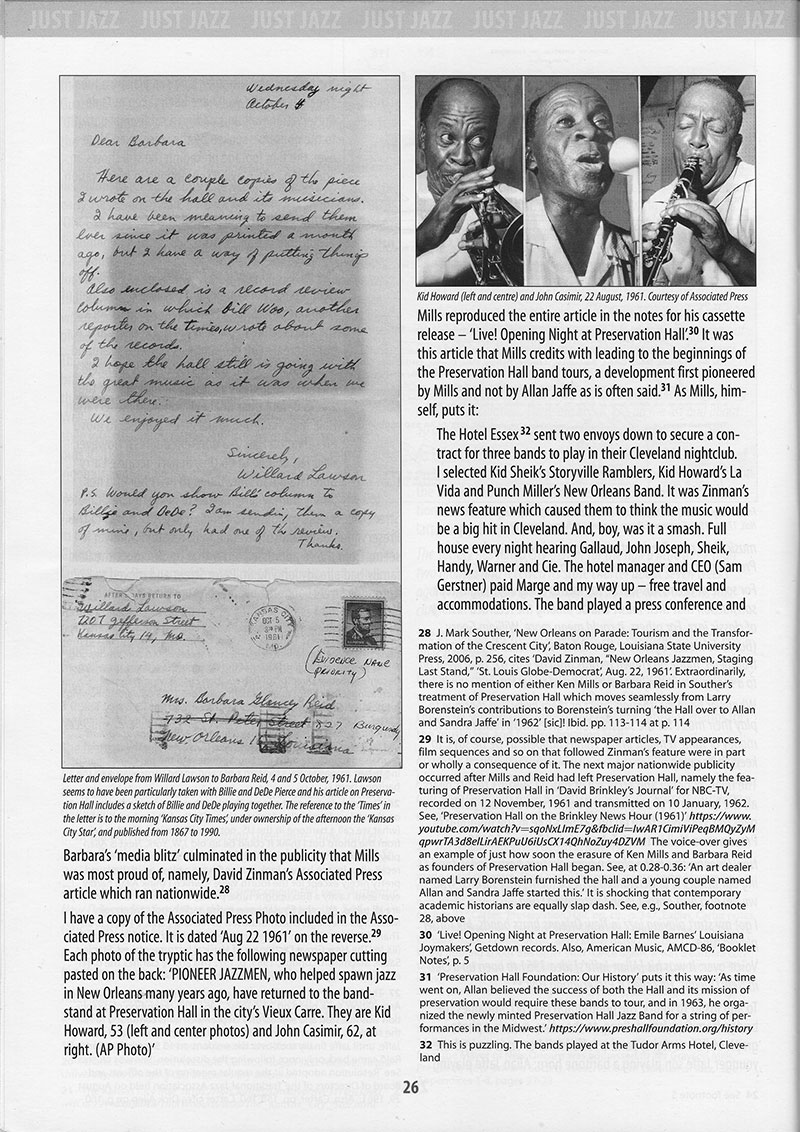 JUST JAZZ JUST JAZZ JUST JAZZ JUST JAZZ JUST JAZZ JUST JAZZ JUST JAZZ
Wednesday night
October 4
Dear Barbara
Here are a couple copies of the piece
I wrote on the hall and its musicians.
I have been meaning to send them
ever since it was printed a month
ago, but I have a way of putting things
off.
Also enclosed is a record review
column in which Bill Woo, another
reporter on the times, wrote about some
of the records.
I hope the hall still is going with
the great music as it was when we
were there.
We enjoyed it much.
Sincerely,
Willard Lawson
P.S. Would you show Bill's column to
Billie and DeDe? I am sendin, them a copy
of mine, but only had one of the review.
Thanks.
AFTER DAYS RETURN TO
Willard Lawson
1207 Jefferson Street
Kansas City 14, Mo.
KANSAS CITY
OCT 5
PM
1961
MO.
(EVIDENCE NAME
PRIORITY)
Mrs. Barbara Glancey Reid
732 St. Peter Street 827 Burgundy
New Orleans 16, Louisiana
Letter and envelope from Willard Lawson to Barbara Reid, 4 and 5 October, 1961. Lawson
seems to have been particularly taken with Billie and DeDe Pierce and his article on Preserva-
tion Hall includes a sketch of Billie and DeDe playing together. The reference to the 'Times' in
the letter is to the morning 'Kansas City Times', under ownership of the afternoon the 'Kansas
City Star', and published from 1867 to 1990.
Barbara's 'media blitz' culminated in the publicity that Mills
was most proud of, namely, David Zinman's Associated Press
article which ran nationwide.28
I have a copy of the Associated Press Photo included in the Asso-
ciated Press notice. It is dated 'Aug 22 1961' on the reverse.29
Each photo of the tryptic has the following newspaper cutting
pasted on the back: 'PIONEER JAZZMEN, who helped spawn jazz
in New Orleans many years ago, have returned to the band-
stand at Preservation Hall in the city's Vieux Carre. They are Kid
Howard, 53 (left and center photos) and John Casimir, 62, at
right. (AP Photo)'
Kid Howard (left and centre) and John Casimir, 22 August, 1961. Courtesy of Associated Press
Mills reproduced the entire article in the notes for his cassette
release – 'Live! Opening Night at Preservation Hall'.30 It was
this article that Mills credits with leading to the beginnings of
the Preservation Hall band tours, a development first pioneered
by Mills and not by Allan Jaffe as is often said.31 As Mills, him-
self, puts it:
The Hotel Essex 32 sent two envoys down to secure a con-
tract for three bands to play in their Cleveland nightclub.
I selected Kid Sheik's Storyville Ramblers, Kid Howard's La
Vida and Punch Miller's New Orleans Band. It was Zinman's
news feature which caused them to think the music would
be a big hit in Cleveland. And, boy, was it a smash. Full
house every night hearing Gallaud, John Joseph, Sheik,
Handy, Warner and Cie. The hotel manager and CEO (Sam
Gerstner) paid Marge and my way up – free travel and
accommodations. The band played a press conference and
28 J. Mark Souther, 'New Orleans on Parade: Tourism and the Transfor-
mation of the Crescent City', Baton Rouge, Louisiana State University
Press, 2006, p. 256, cites 'David Zinman, "New Orleans Jazzmen, Staging
Last Stand," 'St. Louis Globe-Democrat', Aug. 22, 1961'. Extraordinarily,
there is no mention of either Ken Mills or Barbara Reid in Souther's
treatment of Preservation Hall which moves seamlessly from Larry
Borenstein's contributions to Borenstein's turning 'the Hall over to Allan
and Sandra Jaffe' in '1962' [sic]! Ibid. pp. 113-114 at p. 114
29 It is, of course, possible that newspaper articles, TV appearances,
film sequences and so on that followed Zinman's feature were in part
or wholly a consequence of it. The next major nationwide publicity
occurred after Mills and Reid had left Preservation Hall, namely the fea-
turing of Preservation Hall in 'David Brinkley's Journal' for NBC-TV,
recorded on 12 November, 1961 and transmitted on 10 January, 1962.
See, 'Preservation Hall on the Brinkley News Hour (1961)' https://www.
youtube.com/watch?v=sqoNxLImE7g&fbclid=IwAR1CimiViPeqBMQyZyM
qpwrTA3d8elLirAEKPuU6iUsCX14QhNoZuy4DZVM The voice-over gives
an example of just how soon the erasure of Ken Mills and Barbara Reid
as founders of Preservation Hall began. See, at 0.28-0.36: 'An art dealer
named Larry Borenstein furnished the hall and a young couple named
Allan and Sandra Jaffe started this.' It is shocking that contemporary
academic historians are equally slap dash. See, e.g., Souther, footnote
28, above
30 'Live! Opening Night at Preservation Hall: Emile Barnes' Louisiana
Joymakers', Getdown records. Also, American Music, AMCD-86, 'Booklet
Notes', p. 5
31 'Preservation Hall Foundation: Our History' puts it this way: 'As time
went on, Allan believed the success of both the Hall and its mission of
preservation would require these bands to tour, and in 1963, he orga-
nized the newly minted Preservation Hall Jazz Band for a string of per-
formances in the Midwest.' https://www.preshallfoundation.org/history
32 This is puzzling. The bands played at the Tudor Arms Hotel, Cleve-
land
26